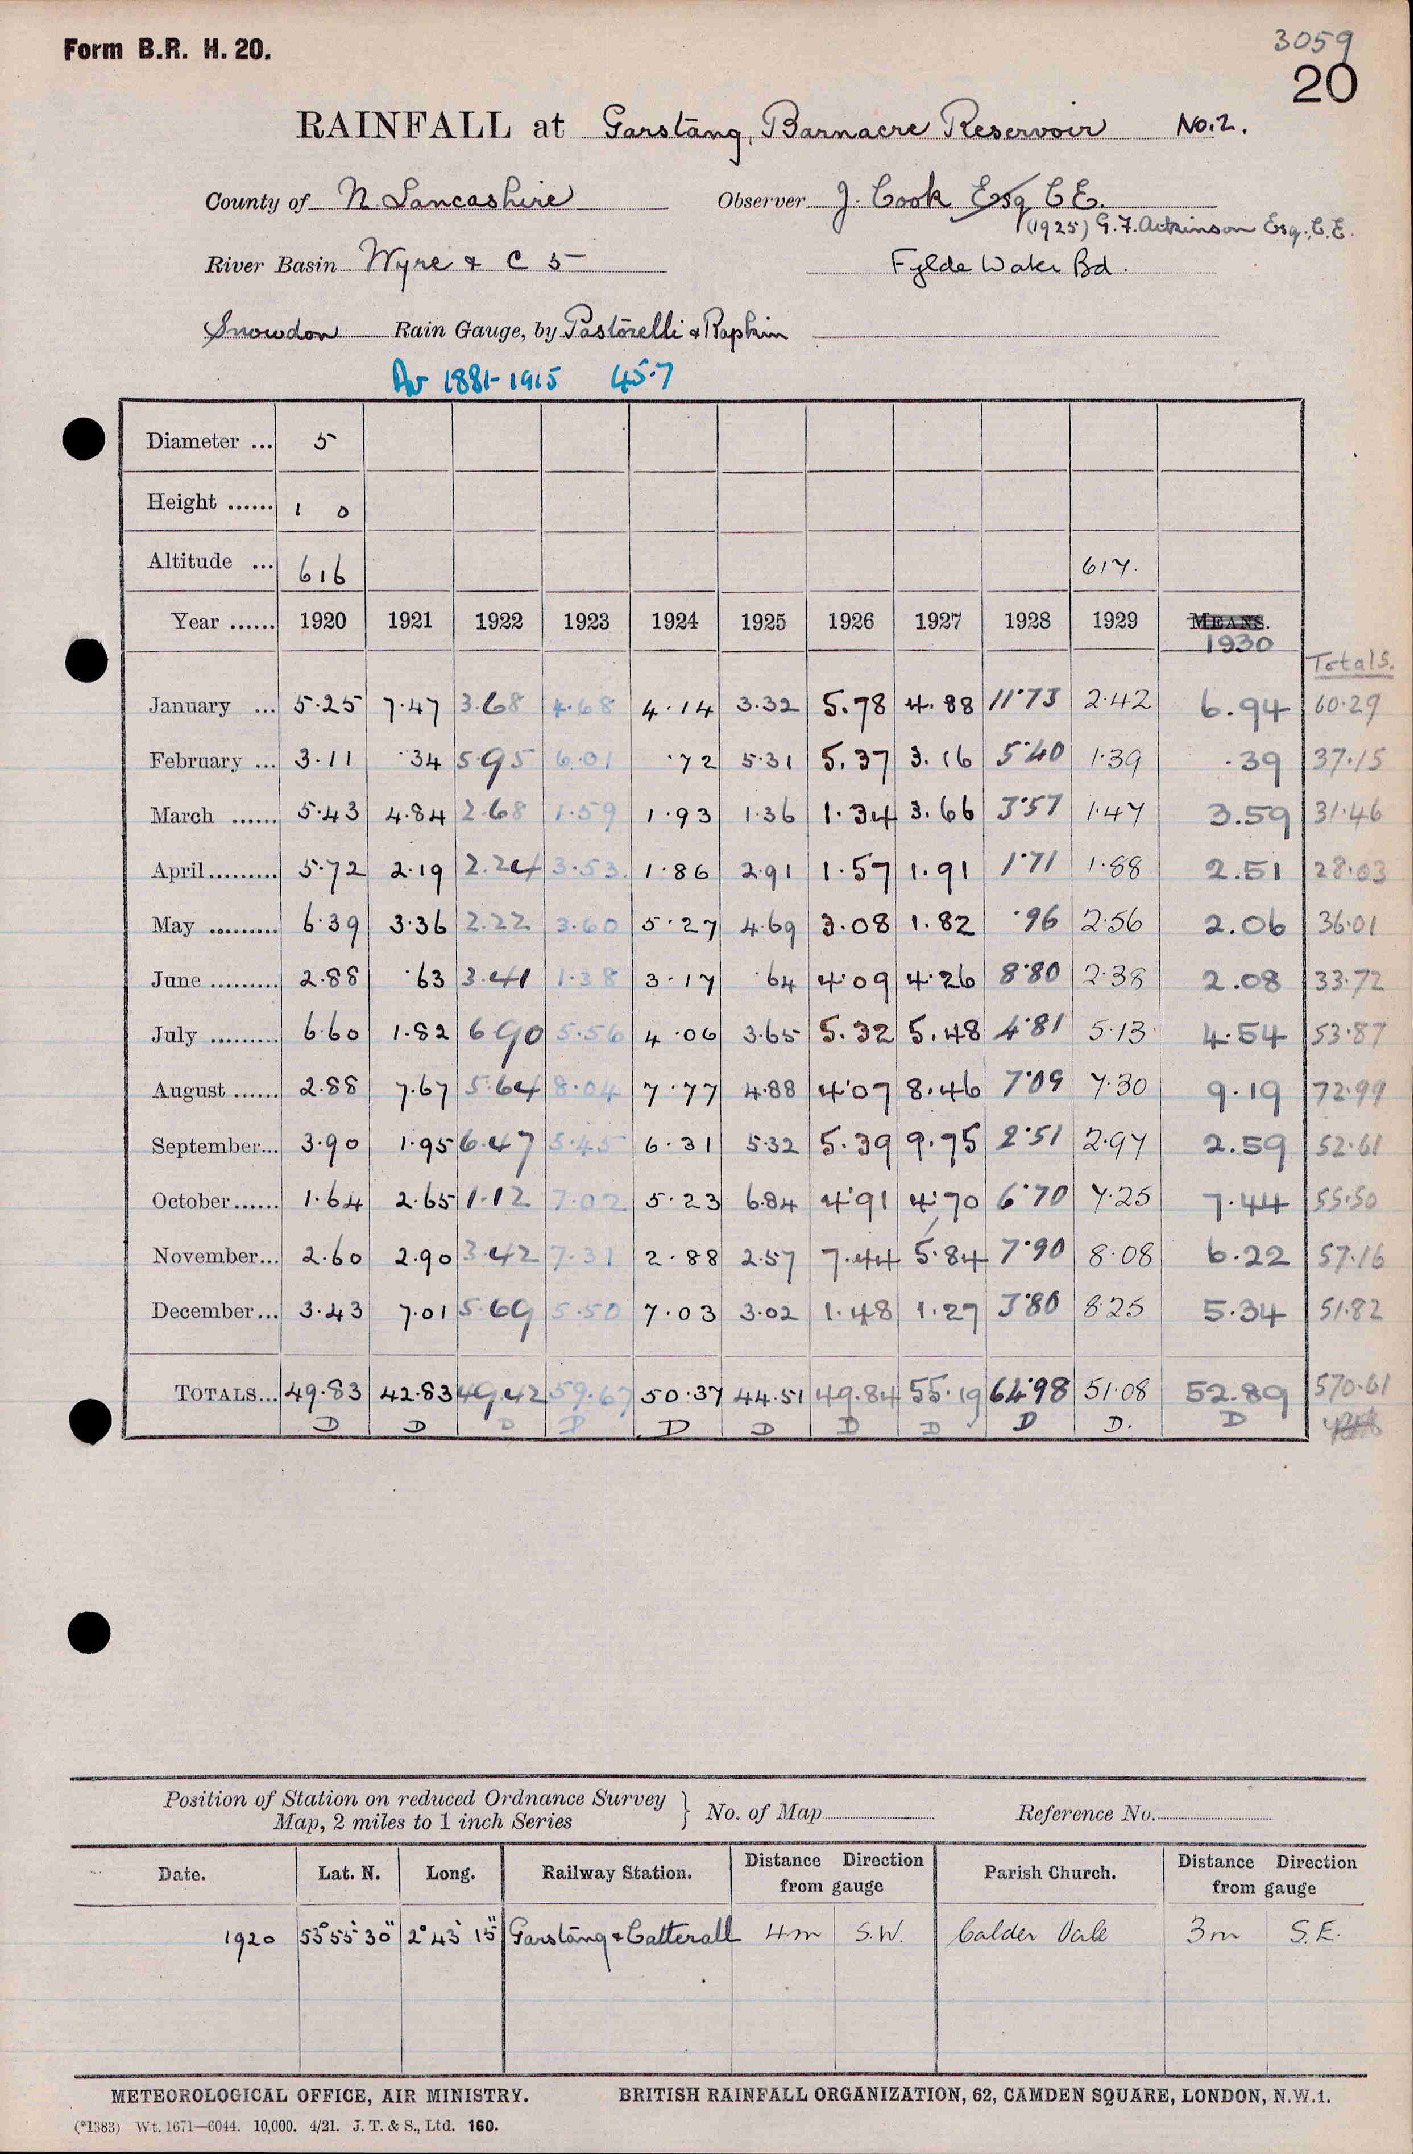 Form B.R. H. 20.
3059
20
RAINFALL at Garstang, Barnacre Reservoir No. 2.
County of N Lancashire Observer J. Cook Esq C E.
(1925) G. F. Atkinson Esq., C. E.
River Basin Wyre & C 5 Fylde Water Bd.
Snowdon Rain Gauge, by Pastorelli & Rapkin
Av 1881-1915 45.7
Diameter ... 5
Height ...... 1 0
Altitude ... 616 617.
Year ...... 1920 1921 1922 1923 1924 1925 1926 1927 1928 1929 MEANS.
1930 Totals.
January ... 5.25 7.47 3.68 4.68 4.14 3.32 5.78 4.88 11.73 2.42 6.94 60.29
February ... 3.11 .34 5.95 6.01 .72 5.31 5.37 3.16 5.40 1.39 .39 37.15
March ...... 5.43 4.84 2.68 1.59 1.93 1.36 1.34 3.66 3.57 1.47 3.59 31.46
April......... 5.72 2.19 2.24 3.53 1.86 2.91 1.57 1.91 1.71 1.88 2.51 28.03
May ......... 6.39 3.36 2.22 3.60 5.27 4.69 3.08 1.82 .96 2.56 2.06 36.01
June ......... 2.88 .63 3.41 1.38 3.17 .64 4.09 4.26 8.80 2.38 2.08 33.72
July ......... 6.60 1.82 6.90 5.56 4.06 3.65 5.32 5.48 4.81 5.13 4.54 53.87
August ...... 2.88 7.67 5.64 8.04 7.77 4.88 4.07 8.46 7.09 7.30 9.19 72.99
September... 3.90 1.95 6.47 5.45 6.31 5.32 5.39 9.75 2.51 2.97 2.59 52.61
October...... 1.64 2.65 1.12 7.02 5.23 6.84 4.91 4.70 6.70 7.25 7.44 55.50
November... 2.60 2.90 3.42 7.31 2.88 2.57 7.44 5.84 7.90 8.08 6.22 57.16
December... 3.43 7.01 5.69 5.50 7.03 3.02 1.48 1.27 3.80 8.25 5.34 51.82
TOTALS... 49.83 42.83 49.42 59.67 50.37 44.51 49.84 55.19 64.98 51.08 52.89 570.61
D D D D D D D D D D. D
Position of Station on reduced Ordnance Survey
Map, 2 miles to 1 inch Series } No. of Map Reference No.
Date. Lat. N. Long. Railway Station. Distance Direction from gauge Parish Church. Distance Direction from gauge
1920 53° 55' 30" 2° 43' 15" Garstang & Catterall 4m S.W. Calder Vale 3m S.E.
METEOROLOGICAL OFFICE, AIR MINISTRY. BRITISH RAINFALL ORGANIZATION, 62, CAMDEN SQUARE, LONDON, N.W.1.
(*1383) Wt. 1671—6044. 10,000. 4/21. J. T. & S., Ltd. 160.